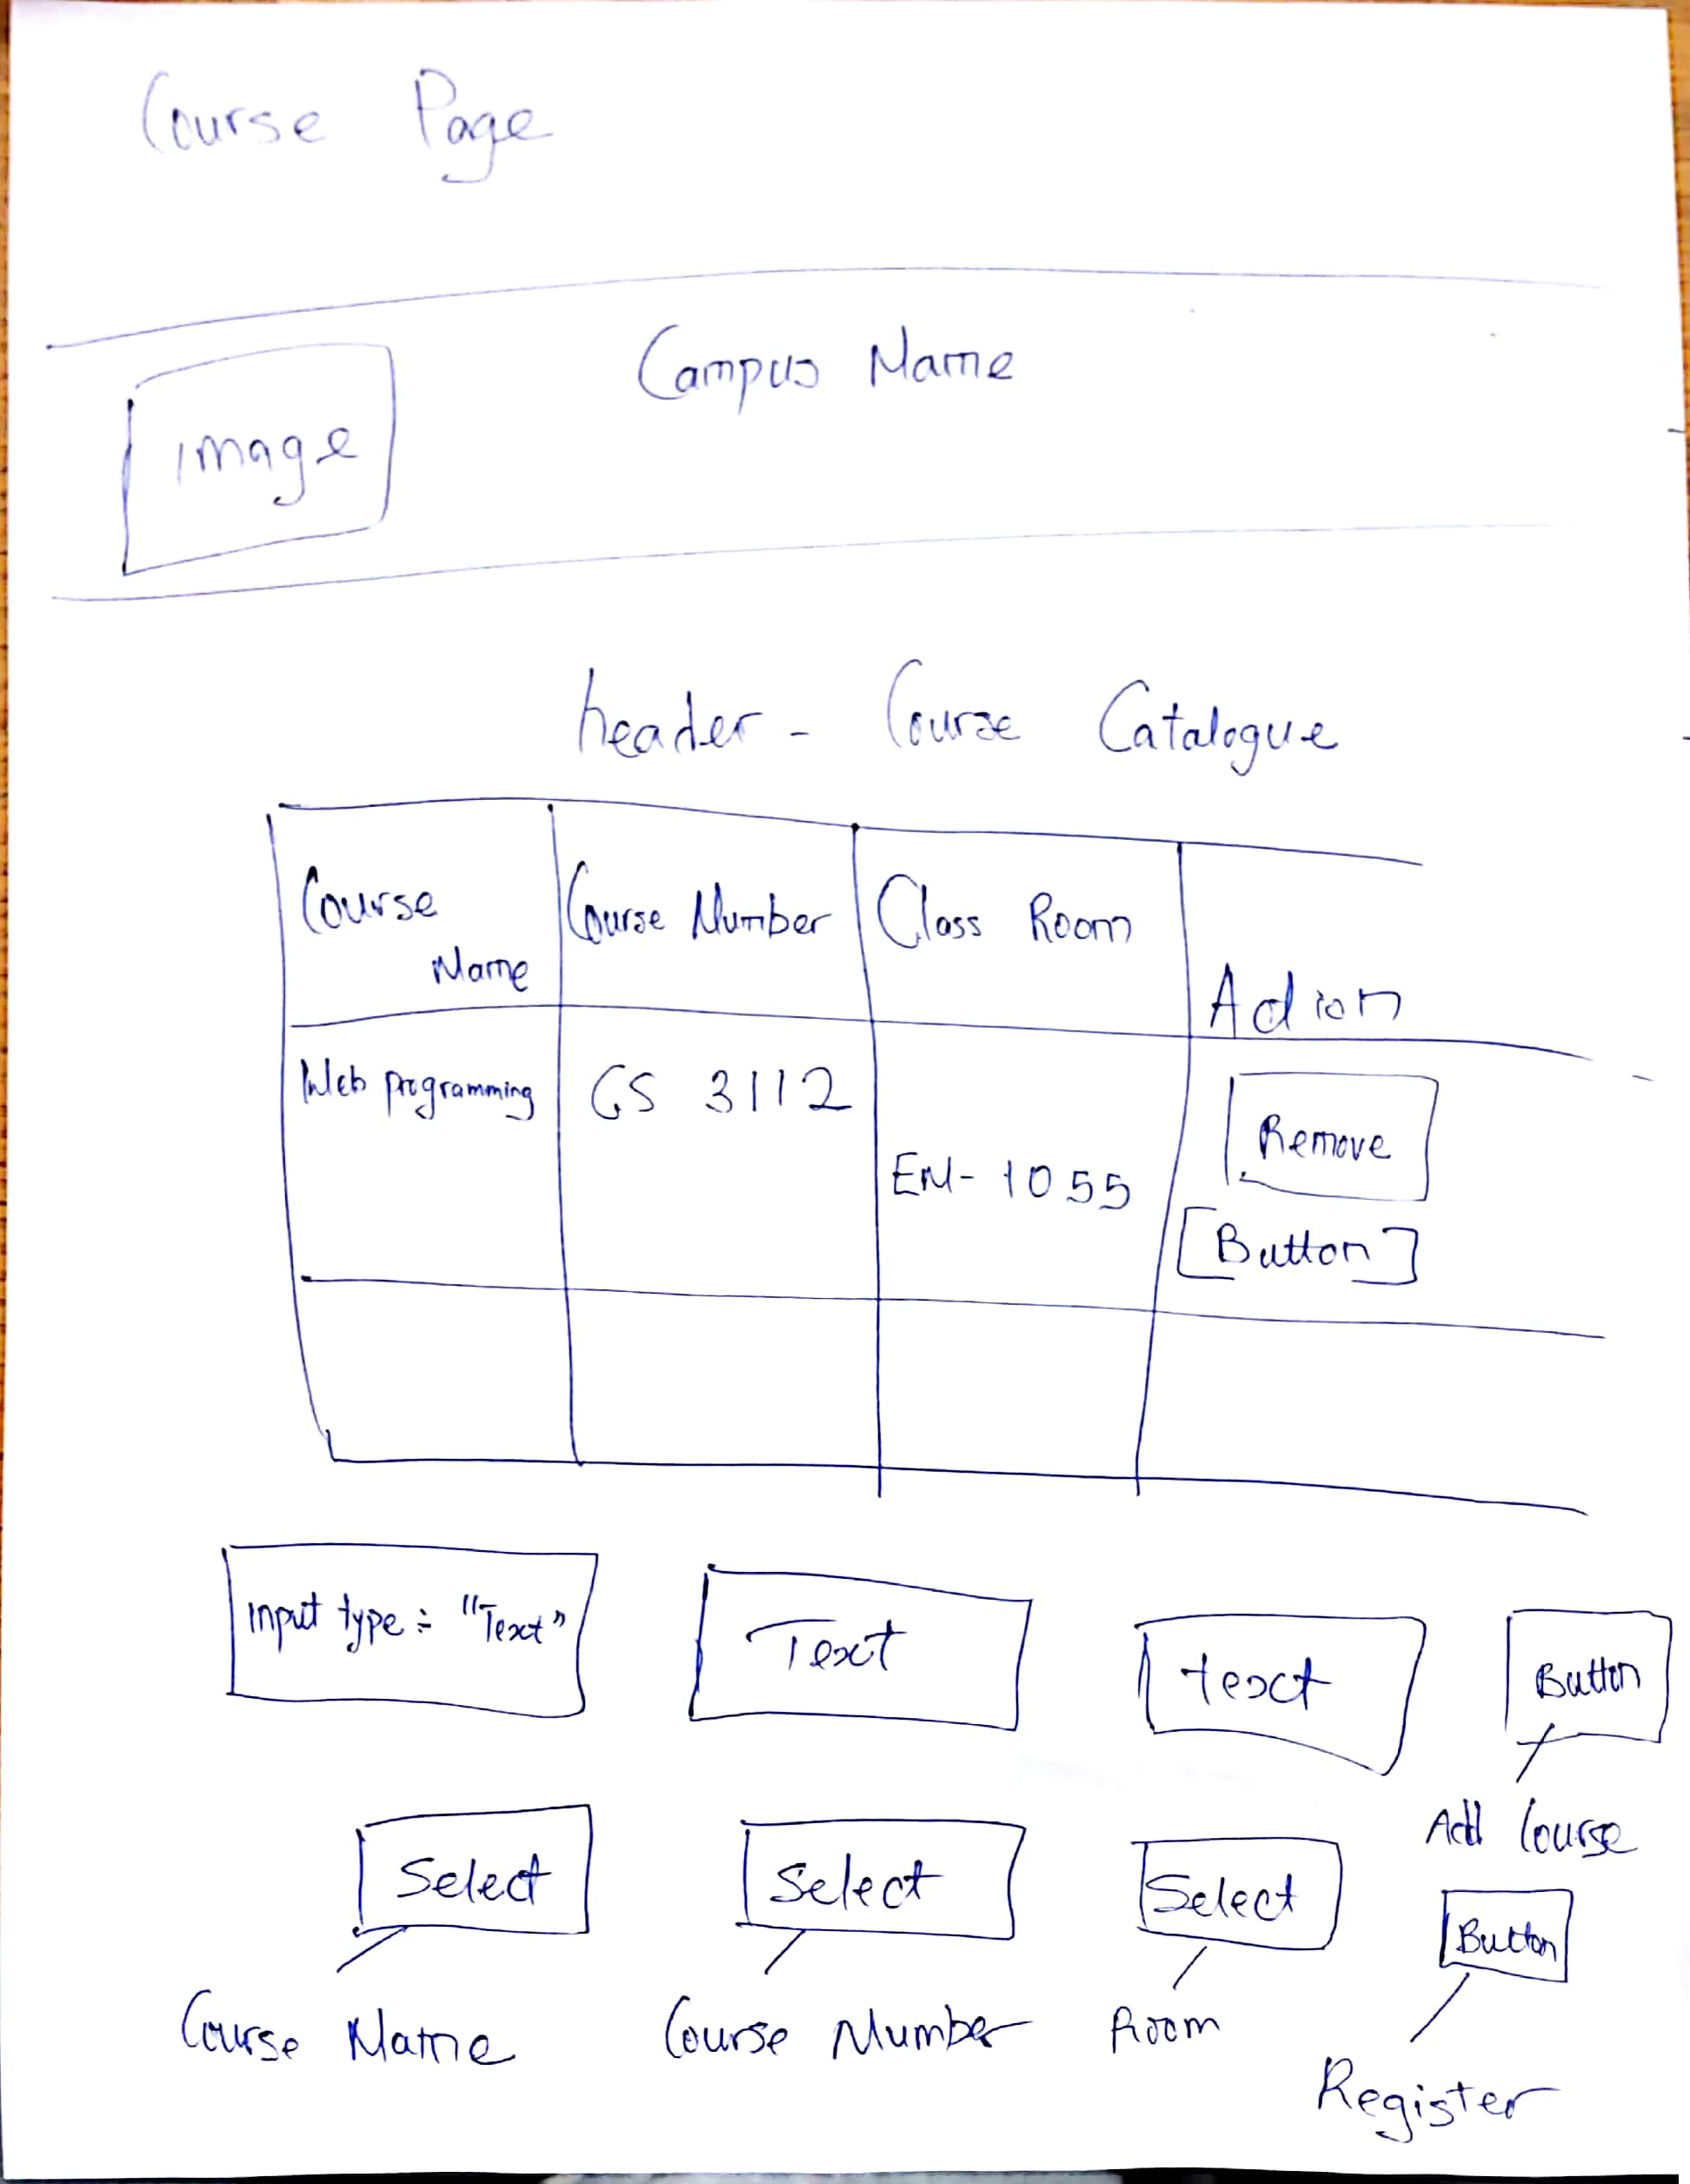 Course Page
Campus Name
image
header - Course Catalogue
Course Name
Course Number
Class Room
Action
Web programming
CS 3112
EN- 1055
Remove
[Button]
input type = "Text"
Text
text
Button
Add Course
Select
Select
Select
Button
Course Name
Course Number
Room
Register